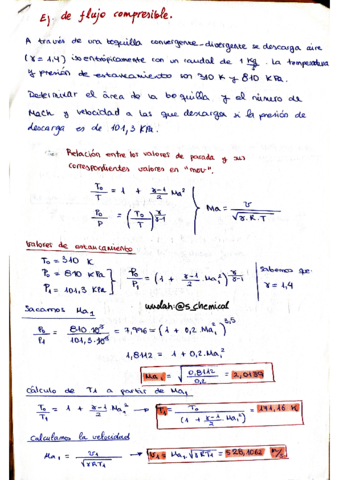 Ej. de flujo compresible.
A través de una boquilla convergente-divergente se descarga aire
(γ = 1,4) isoentrópicamente con un caudal de 1 Kg/s. La temperatura
y presión de estancamiento son 310 K y 810 KPa.
Determinar el área de la boquilla y el número de
Mach y velocidad a las que descarga si la presión de
descarga es de 101,3 KPa.
Relación entre los valores de parada y sus
correspondientes valores en "mov".
To/T = 1 + (γ-1)/2 Ma²
Po/P = (To/T)^(γ/(γ-1))
Ma = v/√(γ.R.T)
Valores de estancamiento
To = 310 K
Po = 810 KPa
P1 = 101,3 KPa
Po/P1 = (1 + (γ-1)/2 Ma1²)^(γ/(γ-1))
Sabemos que:
γ = 1,4
wuolah:@s_chemical
Sacamos Ma1
Po/P1 = 810.10³/101,3.10³ = 7,996 = (1 + 0,2 Ma1²)^3,5
1,8112 = 1 + 0,2.Ma1²
Ma1 = √(0,8112/0,2) = 2,0139
Cálculo de T1 a partir de Ma1
To/T1 = 1 + (γ-1)/2 Ma1² → T1 = To/(1 + (γ-1)/2 Ma1²) = 171,16 K
Calculamos la velocidad
Ma1 = v1/√(γRT1) → v1 = Ma1.√(γRT1) = 528,1062 m/s